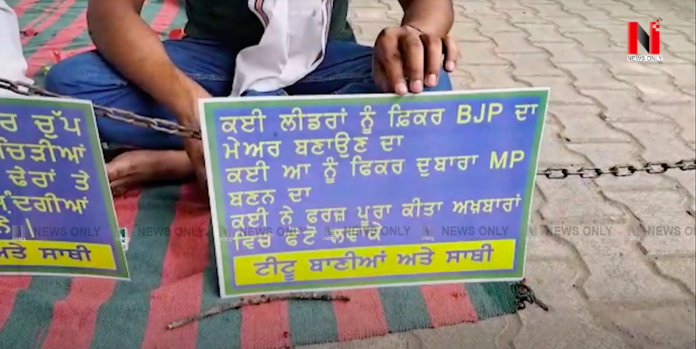 N
NEWS ONLY
ਰ ਚੁੱਪ
ਚਿੜੀਆਂ
ਢੇਰਾਂ ਤੇ
ਨਦਗੀਆਂ
ਨੇ।
ਅਤੇ ਸਾਥੀ
ਕਈ ਲੀਡਰਾਂ ਨੂੰ ਫ਼ਿਕਰ BJP ਦਾ
ਮੇਅਰ ਬਣਾਉਣ ਦਾ
ਕਈ ਆ ਨੂੰ ਫਿਕਰ ਦੁਬਾਰਾ MP
ਬਣਨ ਦਾ
ਕਈ ਨੇ ਫਰਜ਼ ਪੂਰਾ ਕੀਤਾ ਅਖ਼ਬਾਰਾਂ
ਵਿਚ ਫੋਟੋ ਲਵਾਕੇ
ਟੀਟੂ ਬਾਣੀਆਂ ਅਤੇ ਸਾਥੀ
NEWS ONLY NEWS ONLY NEWS ONLY NEWS ONLY NEWS ONLY NEWS ONLY